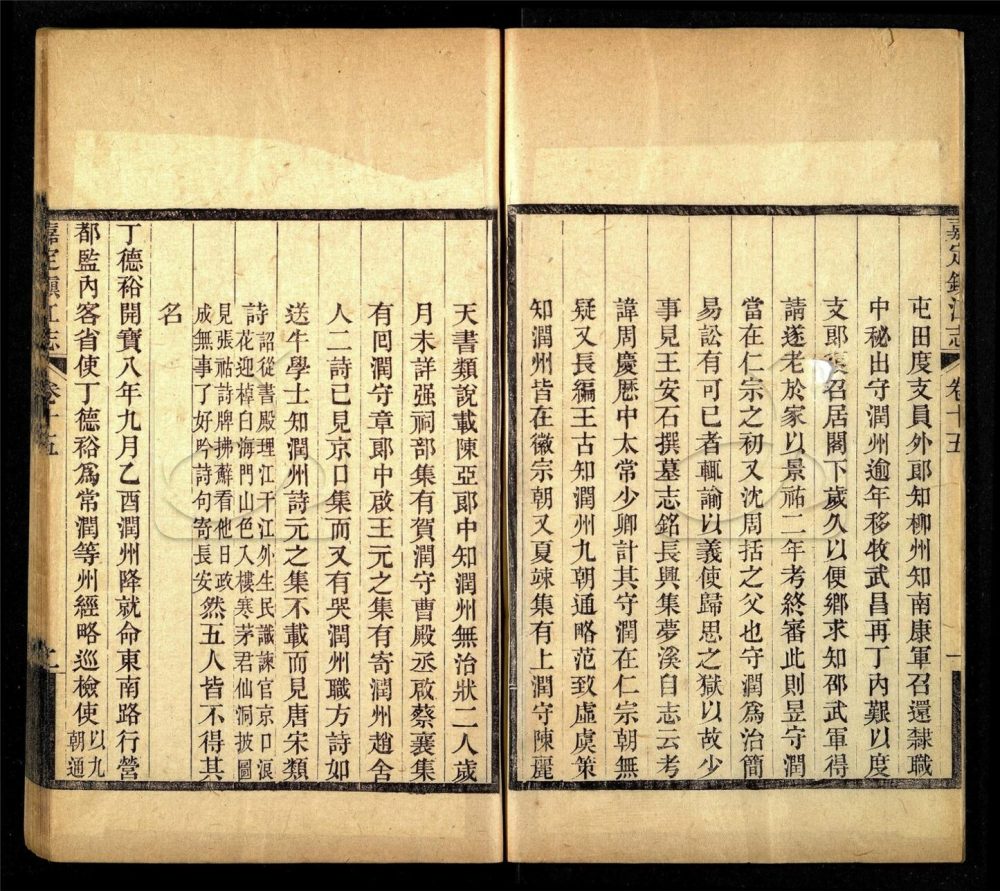 嘉定鎮江志 卷十五 一
屯田度支員外郎知柳州知南康軍召還隸職
中秘出守潤州逾年移牧武昌再丁內艱以度
支郎 召居閣下歲久以便鄉求知邵武軍得
請遂老於家以景祐二年考終審此則昱守潤
當在仁宗之初又沈周括之父也守潤爲治簡
易訟有可已者輒諭以義使歸思之獄以故少
事見王安石撰墓志銘長興集夢溪自志云考
諱周慶歷中太常少卿計其守潤在仁宗朝無
疑又長編王古知潤州九朝通略范致虛虞策
知潤州皆在徽宗朝又夏竦集有上潤守陳麗
天書類說載陳亞郎中知潤州無治狀二人歲
月未詳强祠部集有賀潤守曹殿丞啟蔡襄集
有回潤守章郎中啟王元之集有寄潤州趙舍
人二詩已見京口集而又有哭潤州職方詩如
送牛學士知潤州詩元之集不載而見唐宋類
詩詔從書殿理江干江外生民識諫官京口浪
花迎棹白海門山色入樓寒茅君仙洞披圖
見張祜詩牌拂蘚看他日政
成無事了好吟詩句寄長安然五人皆不得其
名
丁德裕開寶八年九月乙酉潤州降就命東南路行營
都監內客省使丁德裕爲常潤等州經略巡檢使以九
朝通
嘉定鎮江志 卷十五